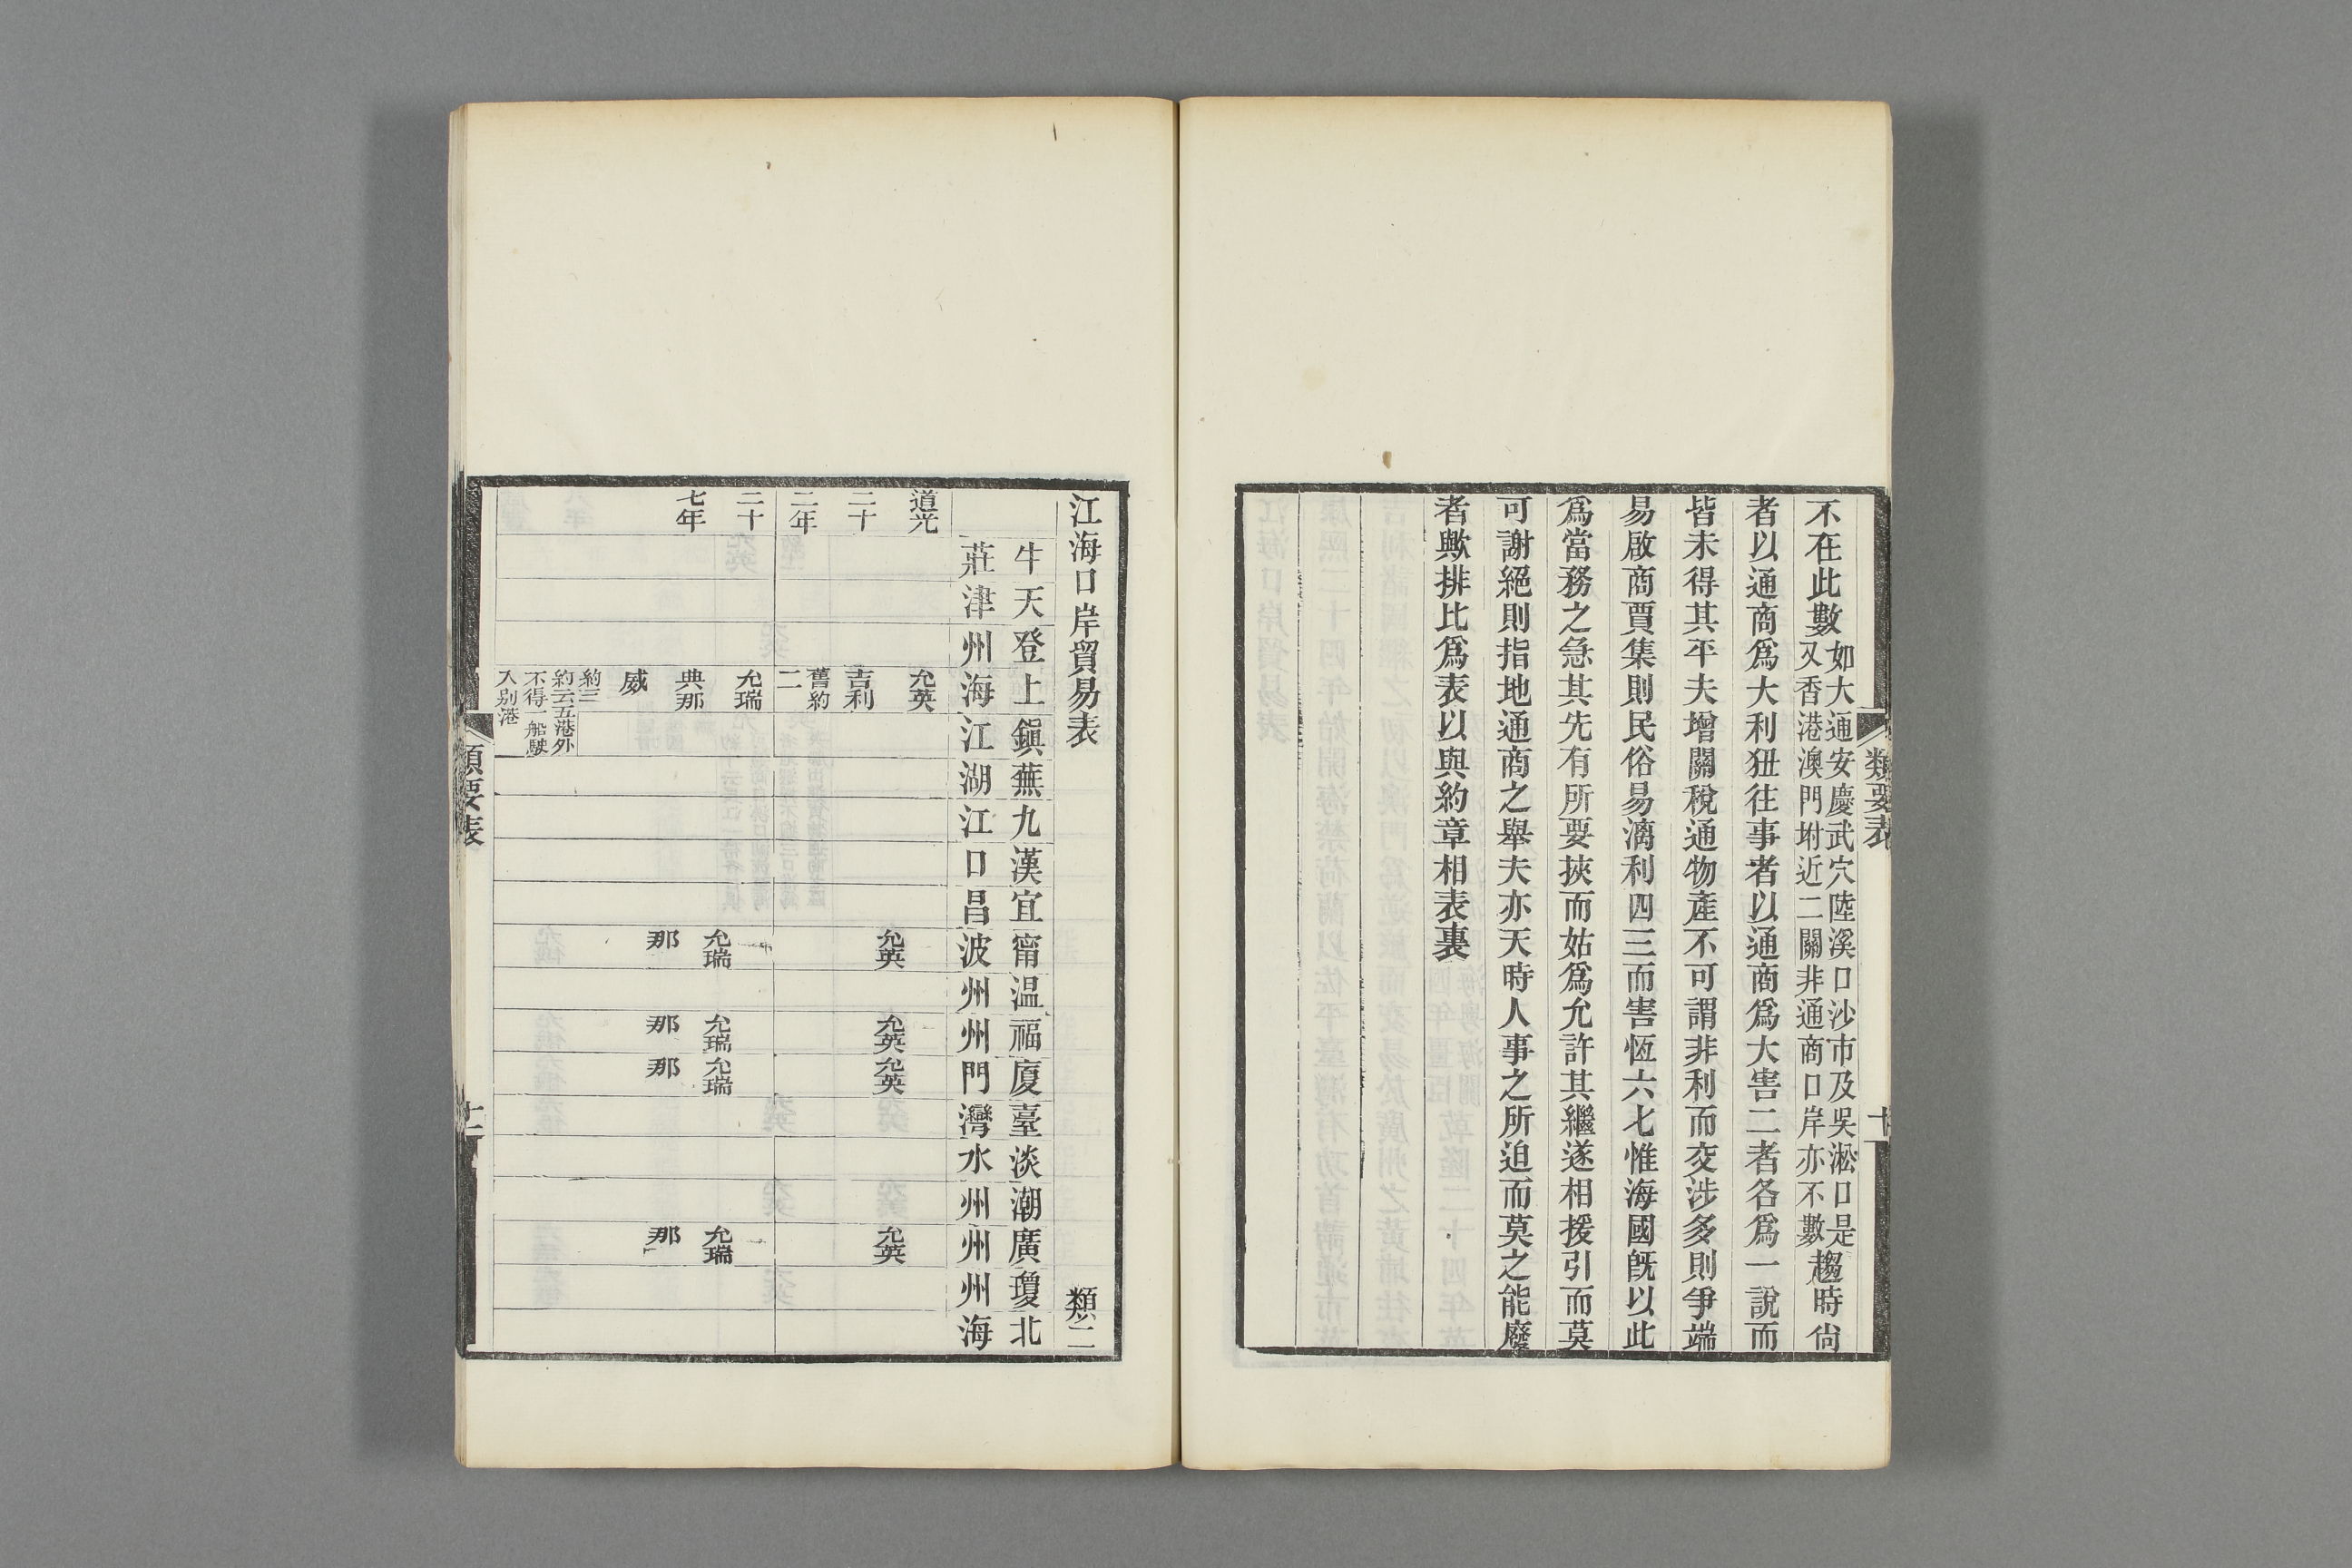 類要表
十
不在此數如大通安慶武穴陸溪口沙市及吳淞口是
又香港澳門坿近二關非通商口岸亦不數趨時尙
者以通商爲大利狃往事者以通商爲大害二者各爲一說而
皆未得其平夫增關稅通物產不可謂非利而交涉多則爭端
易啟商賈集則民俗易漓利四三而害恆六七惟海國旣以此
爲當務之急其先有所要挾而姑爲允許其繼遂相援引而莫
可謝絕則指地通商之舉夫亦天時人事之所迫而莫之能廢
者歟排比爲表以與約章相表裏
江海口岸貿易表
類二
牛莊
天津
登州
上海
鎭江
蕪湖
九江
漢口
宜昌
甯波
温州
福州
廈門
臺灣
淡水
潮州
廣州
瓊州
北海
道光
二十
二年
允英
吉利
舊約
二
允英
允英
允英
允英
二十
七年
允瑞
典那
威
約三
約云五港外
不得一船駛
入别港
允瑞
那
允瑞
那
允瑞
那
允瑞
那
類要表
十一